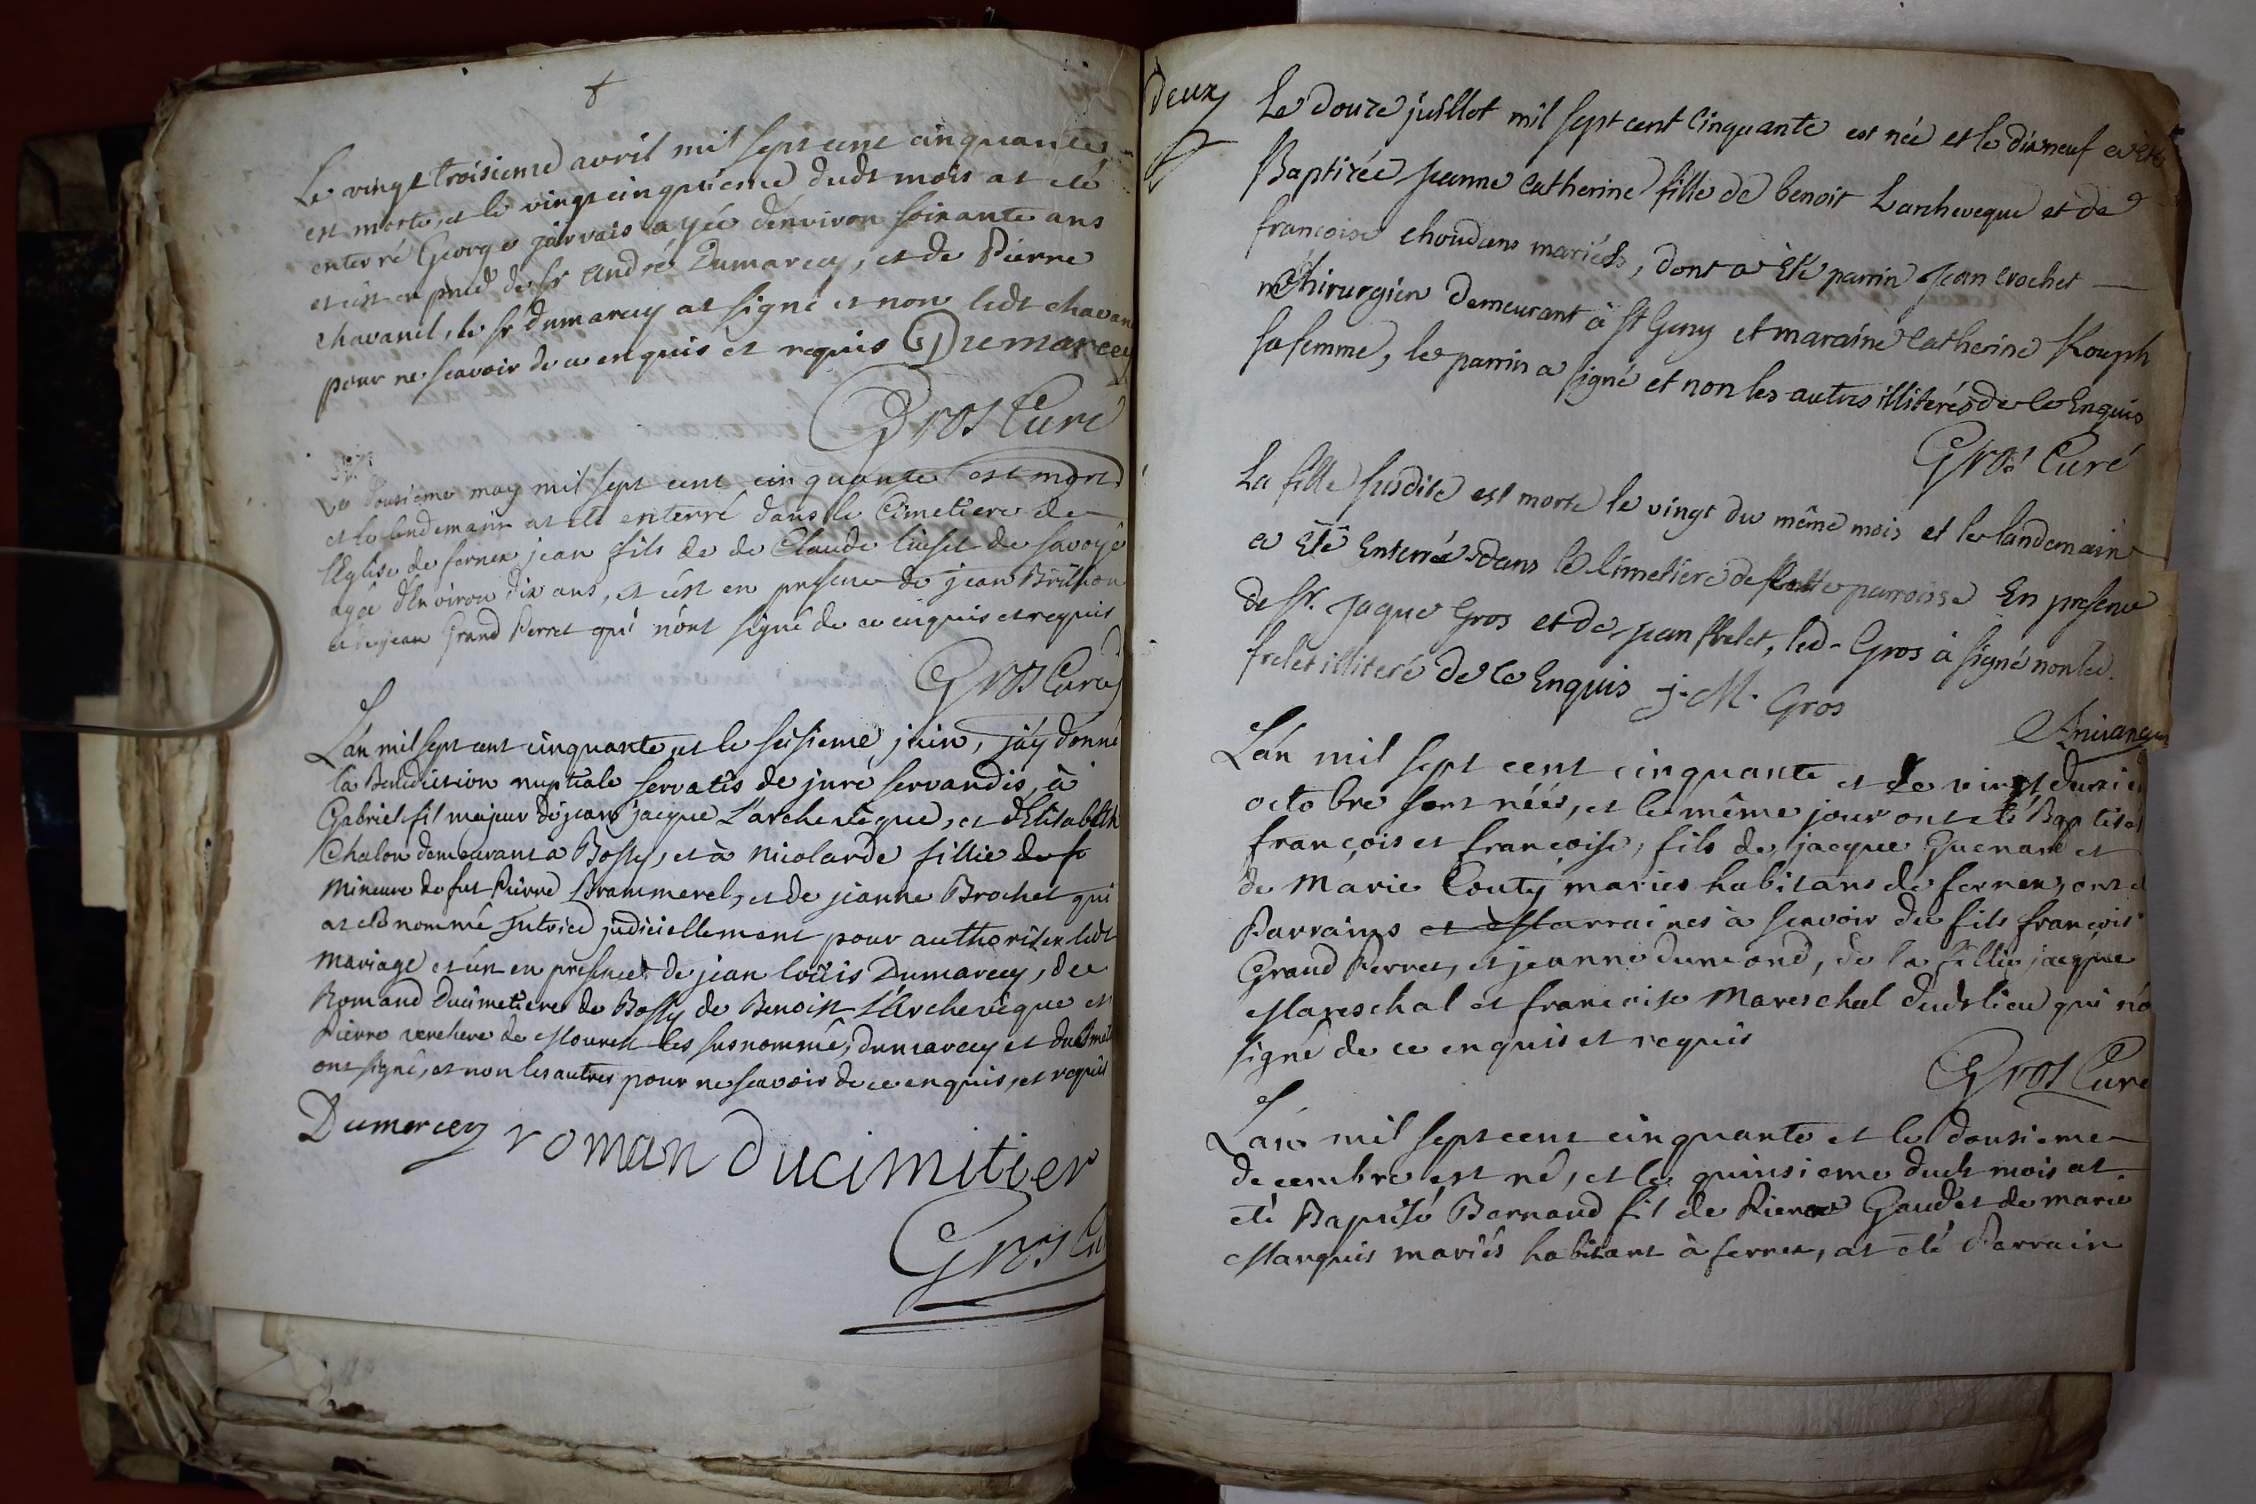 Le vingt troisieme avril mil sept cent cinquante
est morte, et le vingt cinquieme dudt mois at eté
enterré George jarvais agée d'environ soixante ans
et c'est en prnce de sr André Dumarcey, et de Pierre
chavanel, le sr dumarcey at signé et non ledt chavanel
pour ne scavoir de ce enquis et requis Dumarcey
Gros Curé
Le dousieme may mil sept cent cinquante est mort
et le lendemain at eté enterré dans le Cimetiere de
l'Eglise de fernex jean fils de de Claude de Savoye
agée d'Environ dix ans, et c'est en presence de jean
et de jean Grand Perret qui n'ont signé de ce enquis et requis
Gros Curé
L'an mil sept cent cinquante et le seisieme juin, j'ay donné
la Benediction nuptiale servatis de juré servandis, à
Gabriel fil majeur de jean jacque L'archeveque, et d'Elisabeth
Chalon demeurant a Bossy, et à nicolarde fillie de f
mineure de fut Pierre Brammerel, et de jeanne Brochet qui
at eté nommé Tutrice judiciellement pour authoriser ledt
mariage et c'est en presence de jean loüis Dumarcey, de
Romand Ducimetiere de Bossy de Benoist L'Archeveque et
Pierre verchere de Mouren les susnommé, dumarcey et
ont signé, et non les autres pour ne scavoir de ce enquis, et requis
Dumarcey roman ducimitier
Gros Cu
deux
Le douze juillet mil sept cent cinquante est née et le dixneuf a Eté
Baptizée Jeanne Catherine fille de benoit Larcheveque et de
francoise choudens mariés, dont a Eté parrin Jean Crochet
Chirurgien demeurant à St Geny et maraine Catherine
sa femme, le parrin a signé et non les autres illiterés de ce Enquis
Gros Curé
La fille susdite est morte le vingt du même mois et le landemain
a Eté Enterrée dans le Cimetiere de parroisse En presence
de Sr. Jaque Gros et de jean frelet, led. Gros à signé non led.
frelet illiteré de ce Enquis J. M. Gros
L'an mil sept cent cinquante et le vingt
octobre sont néés, et le même jour ont eté Baptisés
françois et françoise, fils de jacque Guenard et
de Marie Couty mariés habitans de fernex, ont
Parrains et Marraines à scavoir du fils francois
Grand Perret, et jeanne dumond, de la fillie jacque
Mareschal et francoise Mareschal dudt lieu qui n'o
signé de ce enquis et requis
Gros Curé
L'an mil sept cent cinquante et le dousieme
decembre est né, et le quinsieme dudt mois at
eté Baptisé Bernand fil de Pierre Gaudet de marie
Marquis mariés habitant à fernex, at eté Parrain